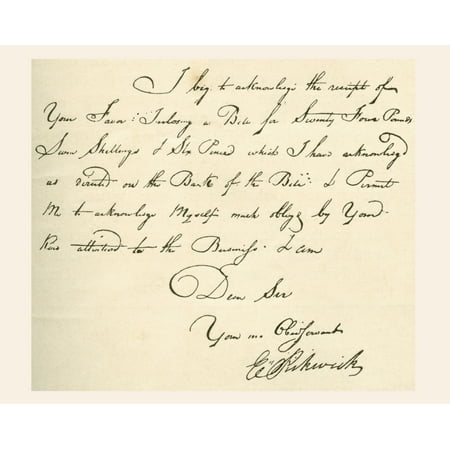 I beg to acknowledge the receipt of
Your Favor: Inclosing a Bill for Twenty Four Pounds
Seven Shillings & Six Pence which I have acknowledg'd
as directed on the Back of the Bill: & Permit
M to acknowledge Myself much oblig'd by Your
attention to the Business. I am
Dear Sir
Your mo Obed Servant
Pickwick